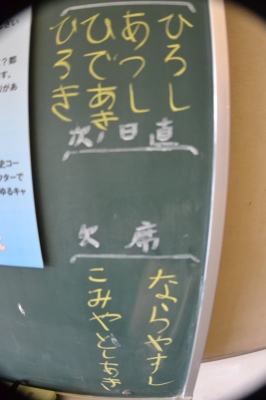 ひろし
あつし
ひであき
ひろき
次日直
欠席
ならやすし
こみやとしあき